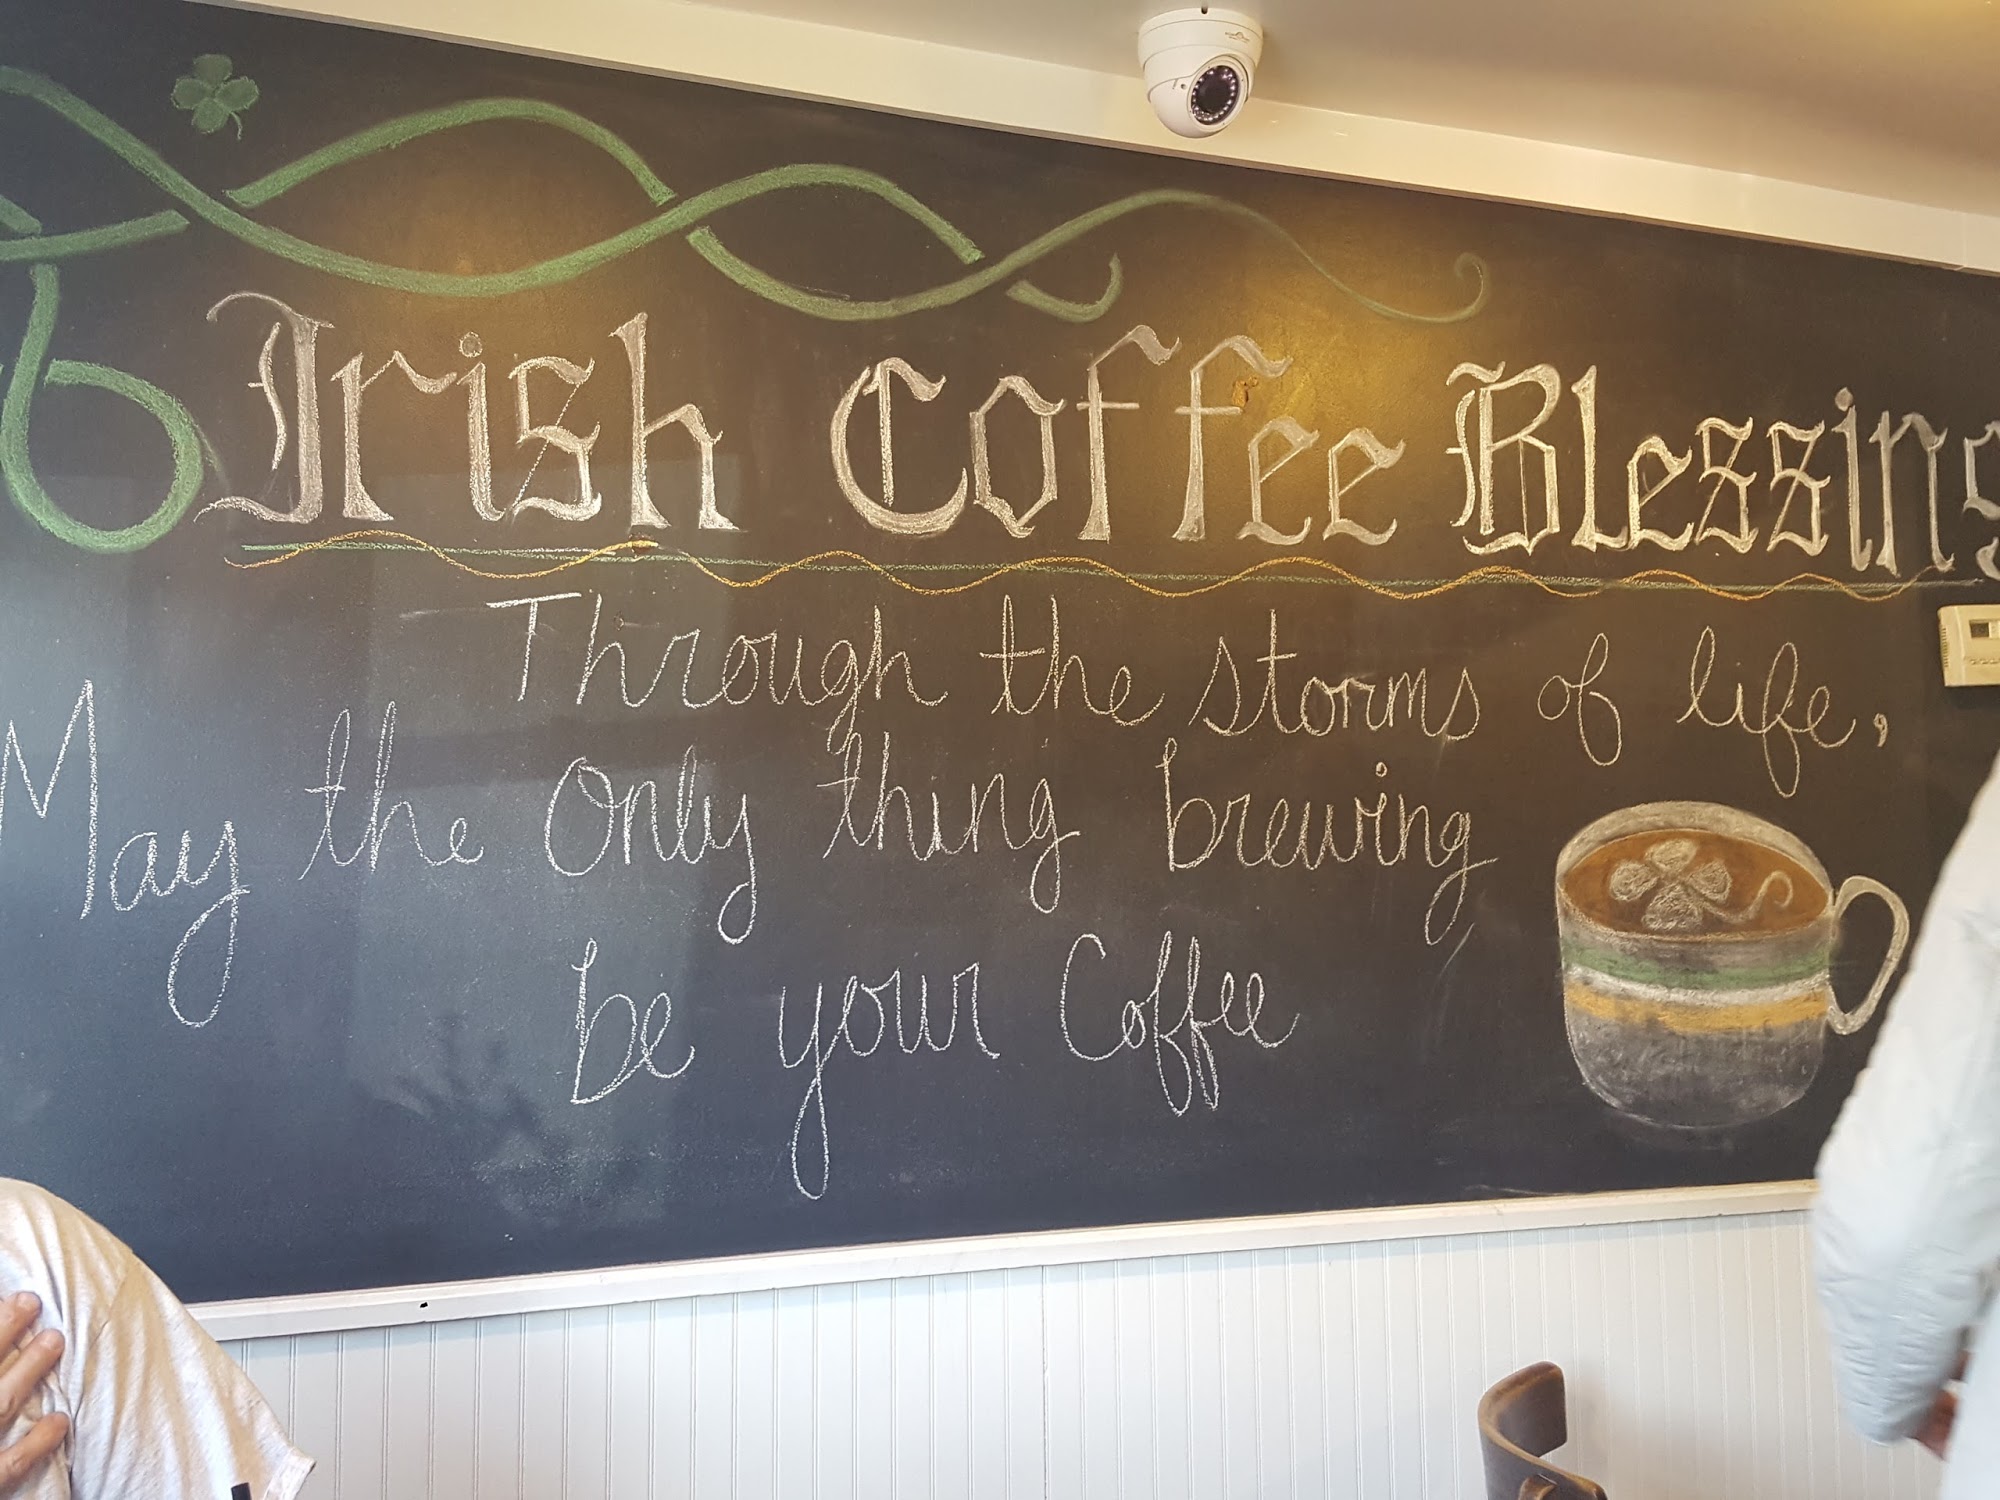 Irish Coffee Blessing
Through the storms of life,
May the Only thing brewing
be your Coffee